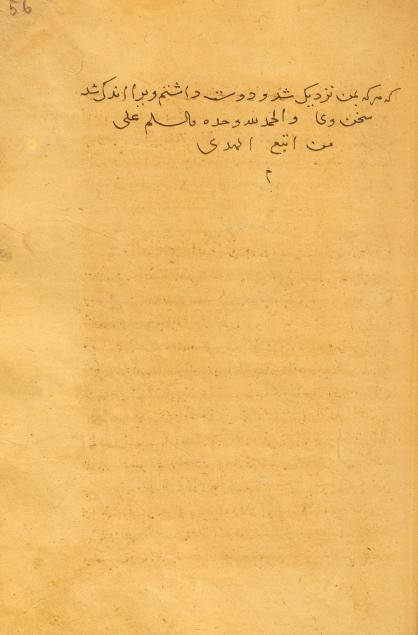 56
که هرکه بمن نزدیک شد و دوست داشتم ویرا اندک شد
سخن وی والحمد لله وحده والسلم علی
من اتبع الهدی
م